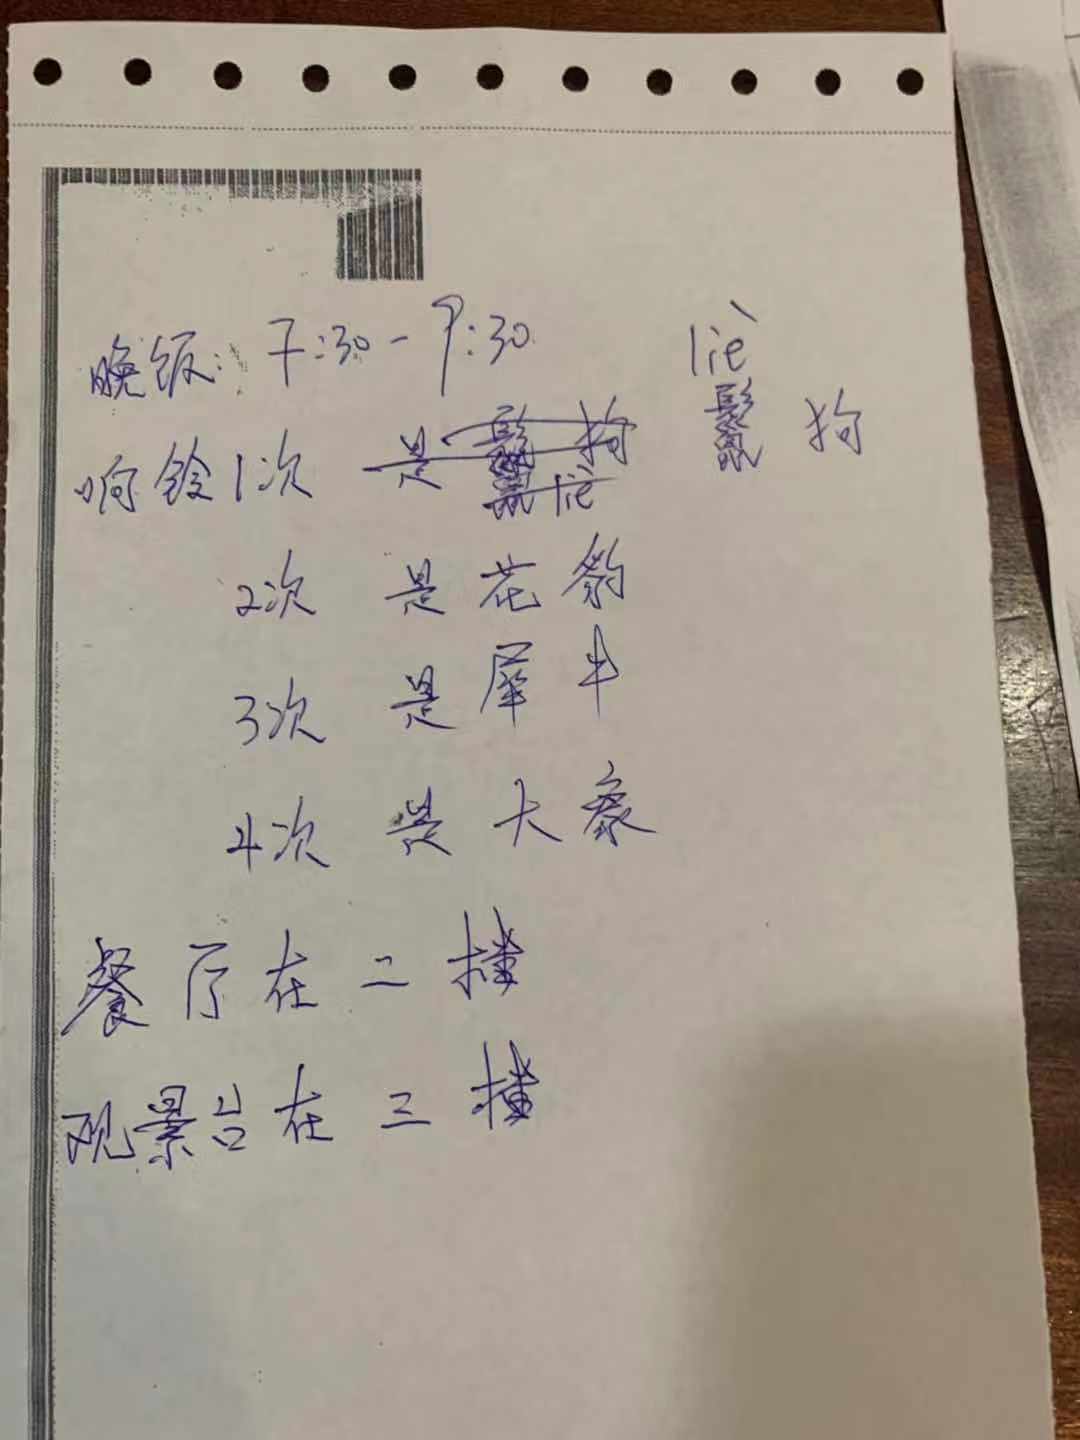 晚饭: 7:30-9:30
liè
响铃1次 是鬣狗 鬣狗
liè
2次 是花豹
3次 是犀牛
4次 是大象
餐厅在二楼
观景台在三楼